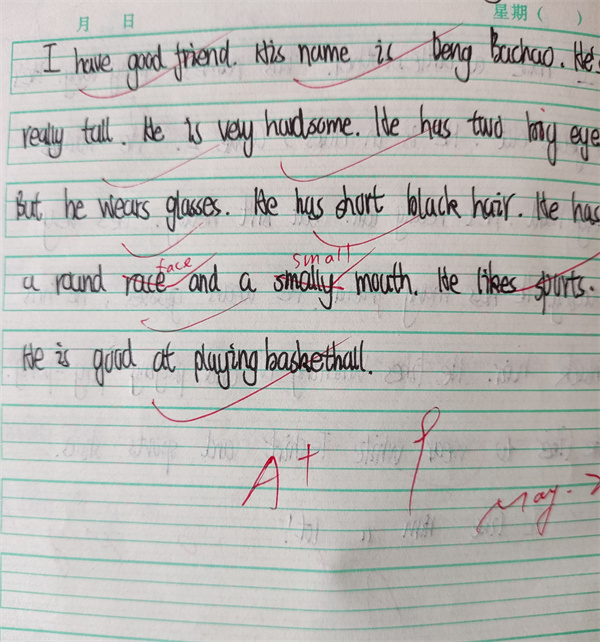 月 日 星期( )
I have good friend. His name is Deng Bachao. He's
really tall. He is very handsome. He has two big eye
But he wears glasses. He has short black hair. He has
face small
a round race and a smally mouth. He likes sports.
He is good at playing basketball.
A+
May.